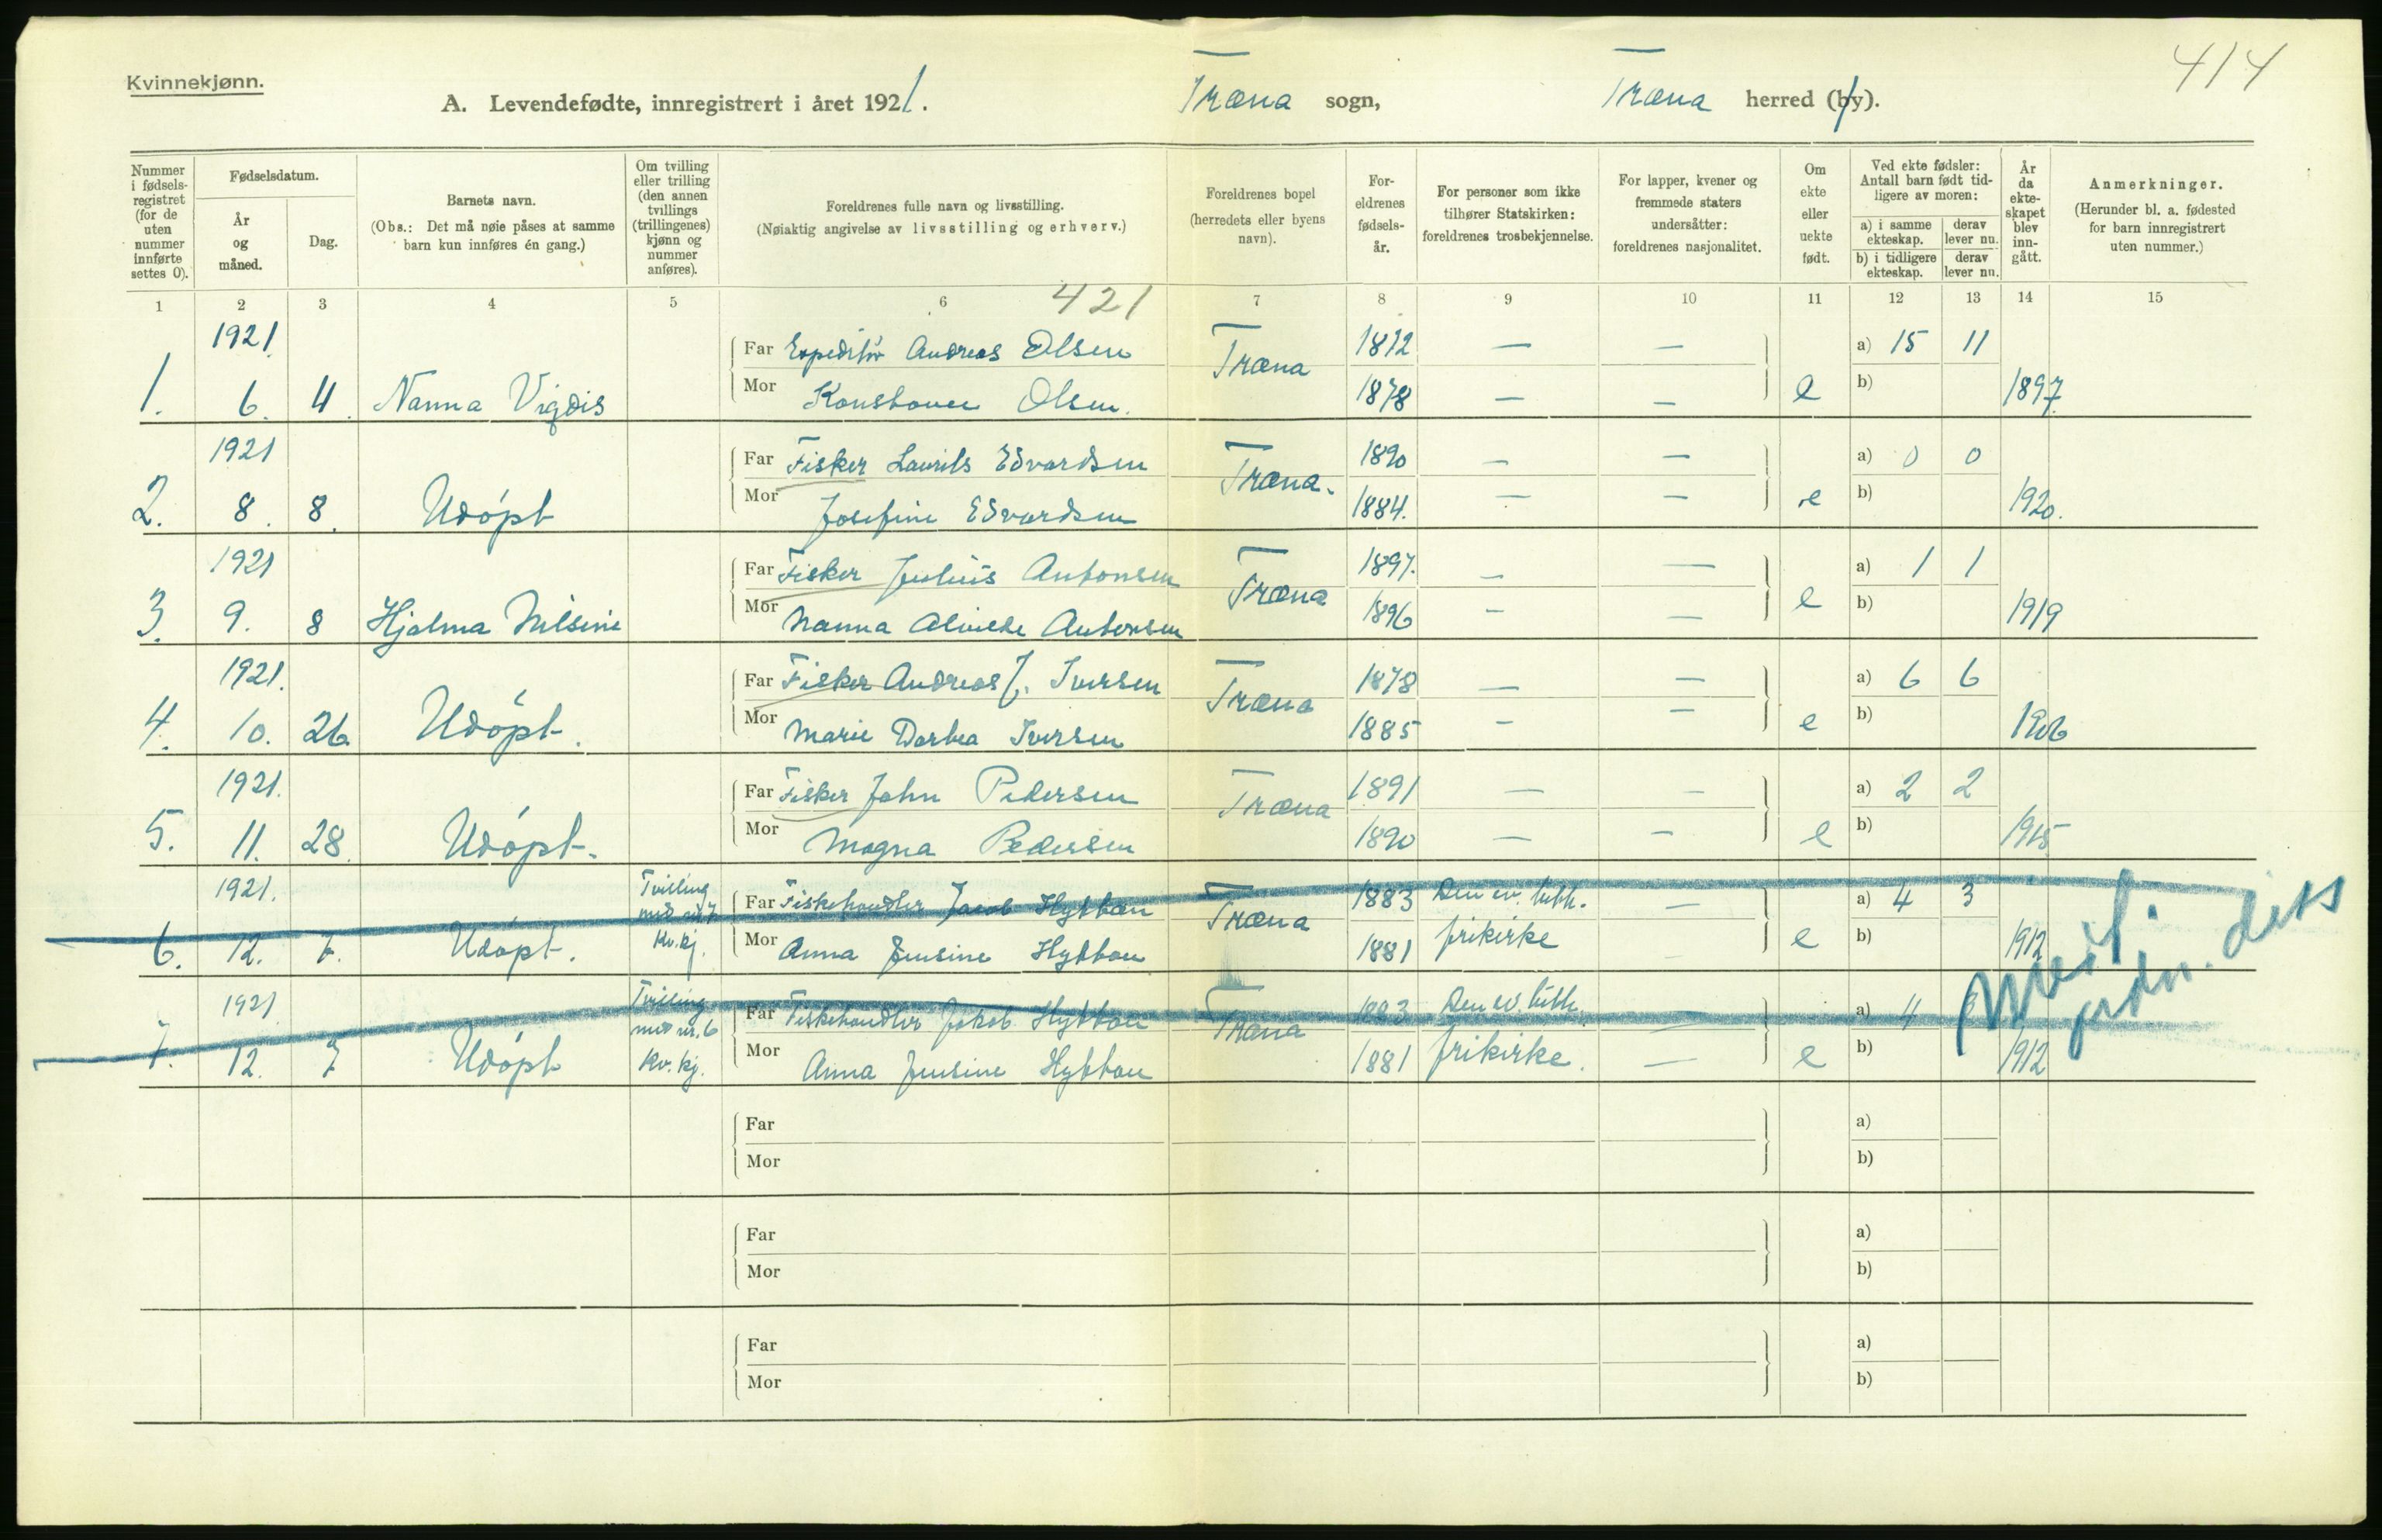 414
Kvinnekjønn.
A. Levendefødte, innregistrert i året 1921. Træna sogn, Træna herred (by).
Nummer i fødselsregistret (for de uten nummer innførte settes 0).
Fødselsdatum.
År og måned.
Dag.
Barnets navn.
(Obs.: Det må nøie påses at samme barn kun innføres én gang.)
Om tvilling eller trilling (den annen tvillings (trillingenes) kjønn og nummer anføres).
Foreldrenes fulle navn og livsstilling.
(Nøiaktig angivelse av livsstilling og erhverv.)
Foreldrenes bopel (herredets eller byens navn).
Foreldrenes fødselsår.
For personer som ikke tilhører Statskirken: foreldrenes trosbekjennelse.
For lapper, kvener og fremmede staters undersåtter: foreldrenes nasjonalitet.
Om ekte eller uekte født.
Ved ekte fødsler: Antall barn født tidligere av moren:
a) i samme ekteskap. derav lever nu.
b) i tidligere ekteskap. derav lever nu.
År da ekteskapet blev inngått.
Anmerkninger.
(Herunder bl. a. fødested for barn innregistrert uten nummer.)
1 2 3 4 5 6 421 7 8 9 10 11 12 13 14 15
1921. Far Expeditör Andreas Olsen Træna 1872 — — a) 15 11
1. 6. 4. Nanna Vigdis Mor Olsen. 1878 — — e b) 1897.
1921 Far Fisker Laurits Edvardsen Træna. 1890 — — a) 0 0
2. 8. 8. Udöpt Mor Josefine Edvardsen 1884. — — e b) 1920.
1921 Far Fisker Julius Antonsen Træna 1897. — — a) 1 1
3. 9. 8 Hjalma Nilsine Mor Nanna Antonsen 1896 — — e b) 1919
1921. Far Fisker Andreas J. Iversen Træna 1878 — — a) 6 6
4. 10. 26. Udöpt. Mor Marie Dortea Iversen 1885 — — e b) 1906
1921. Far Fisker John Pedersen Træna 1891 — — a) 2 2
5. 11. 28. Udöpt. Mor Magna Pedersen 1890 — — e b) 1915
1921. Tvilling med nr. 7 Far Fiskehandler Jacob Hyttan Træna 1883 Den ev. luth. — a) 4 3
6. 12. 7. Udöpt. Kv. kj. Mor Anna Jensine Hyttan 1881 frikirke e b) 1912
1921 Tvilling med nr. 6 Far Fiskehandler Jakob Hyttan Træna 1883 Den ev. luth. — a) 4
7. 12. 7 Udöpt Kv. kj. Mor Anna Jensine Hyttan 1881 frikirke. — e b) 1912
Far a)
Mor b)
Far a)
Mor b)
Far a)
Mor b)